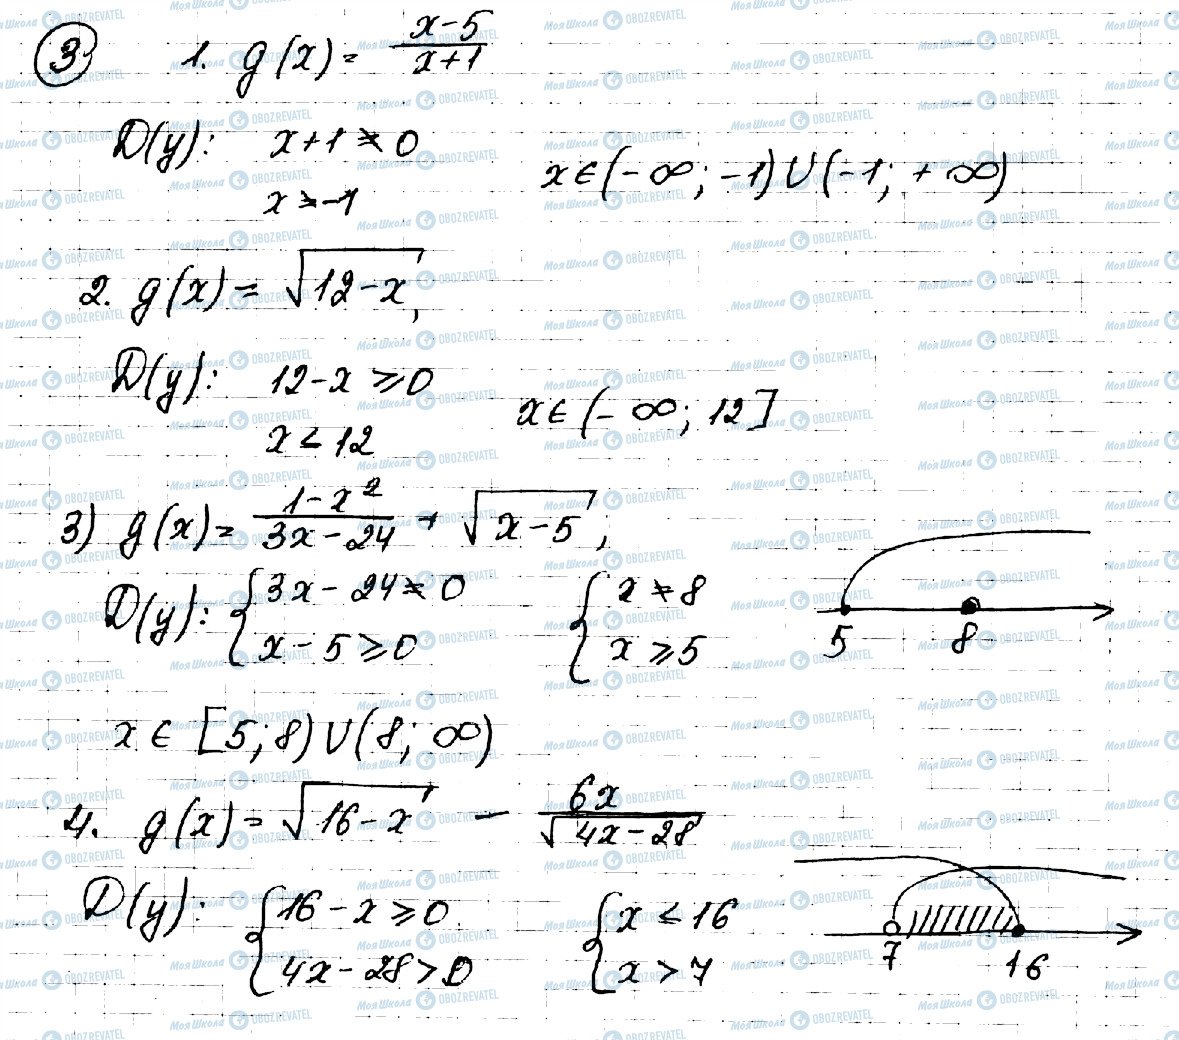 ③ 1. g(x) = (x-5)/(x+1)
D(y): x+1 ≠ 0
x ≠ -1
x ∈ (-∞; -1) ∪ (-1; +∞)
2. g(x) = √(12-x),
D(y): 12-x ≥ 0
x ≤ 12
x ∈ (-∞; 12]
3) g(x) = (1-x²)/(3x-24) + √(x-5),
D(y): { 3x-24 ≠ 0 { x ≠ 8
x-5 ≥ 0 x ≥ 5
5 8
x ∈ [5; 8) ∪ (8; ∞)
4. g(x) = √(16-x) - 6x/√(4x-28)
D(y): { 16-x ≥ 0 { x ≤ 16
4x-28 > 0 x > 7
7 16
Моя Школа OBOZREVATEL